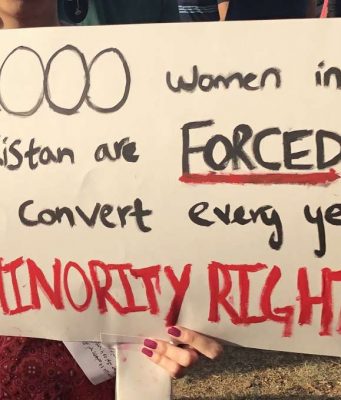 000 women in
istan are FORCED
convert every ye
MINORITY RIGHT